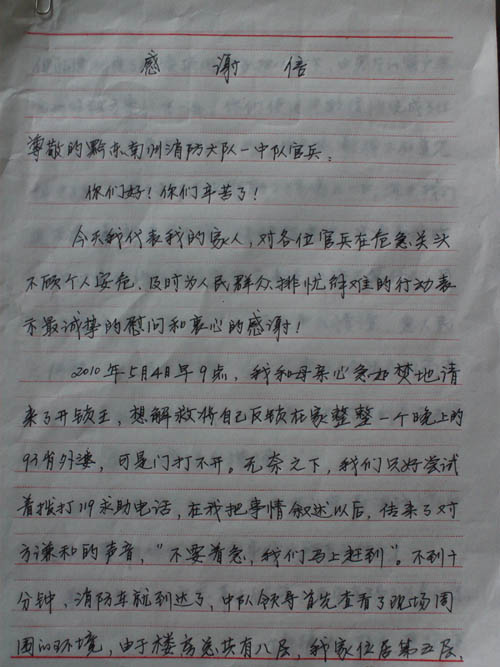 感 谢 信
尊敬的黔东南州消防大队一中队官兵:
你们好!你们辛苦了!
今天我代表我的家人,对各位官兵在危急关头
不顾个人安危、及时为人民群众排忧解难的行动表
示最诚挚的慰问和衷心的感谢!
2010年5月4日早9点,我和母亲心急如焚地请
来了开锁王,想解救将自己反锁在家整整一个晚上的
93岁外婆,可是门打不开。无奈之下,我们只好尝试
着拨打119求助电话,在我把事情叙述以后,传来了对
方谦和的声音,“不要着急,我们马上赶到”。不到十
分钟,消防车就到达了,中队领导首先查看了现场周
围的环境,由于楼房总共有八层,我家位居第五层,